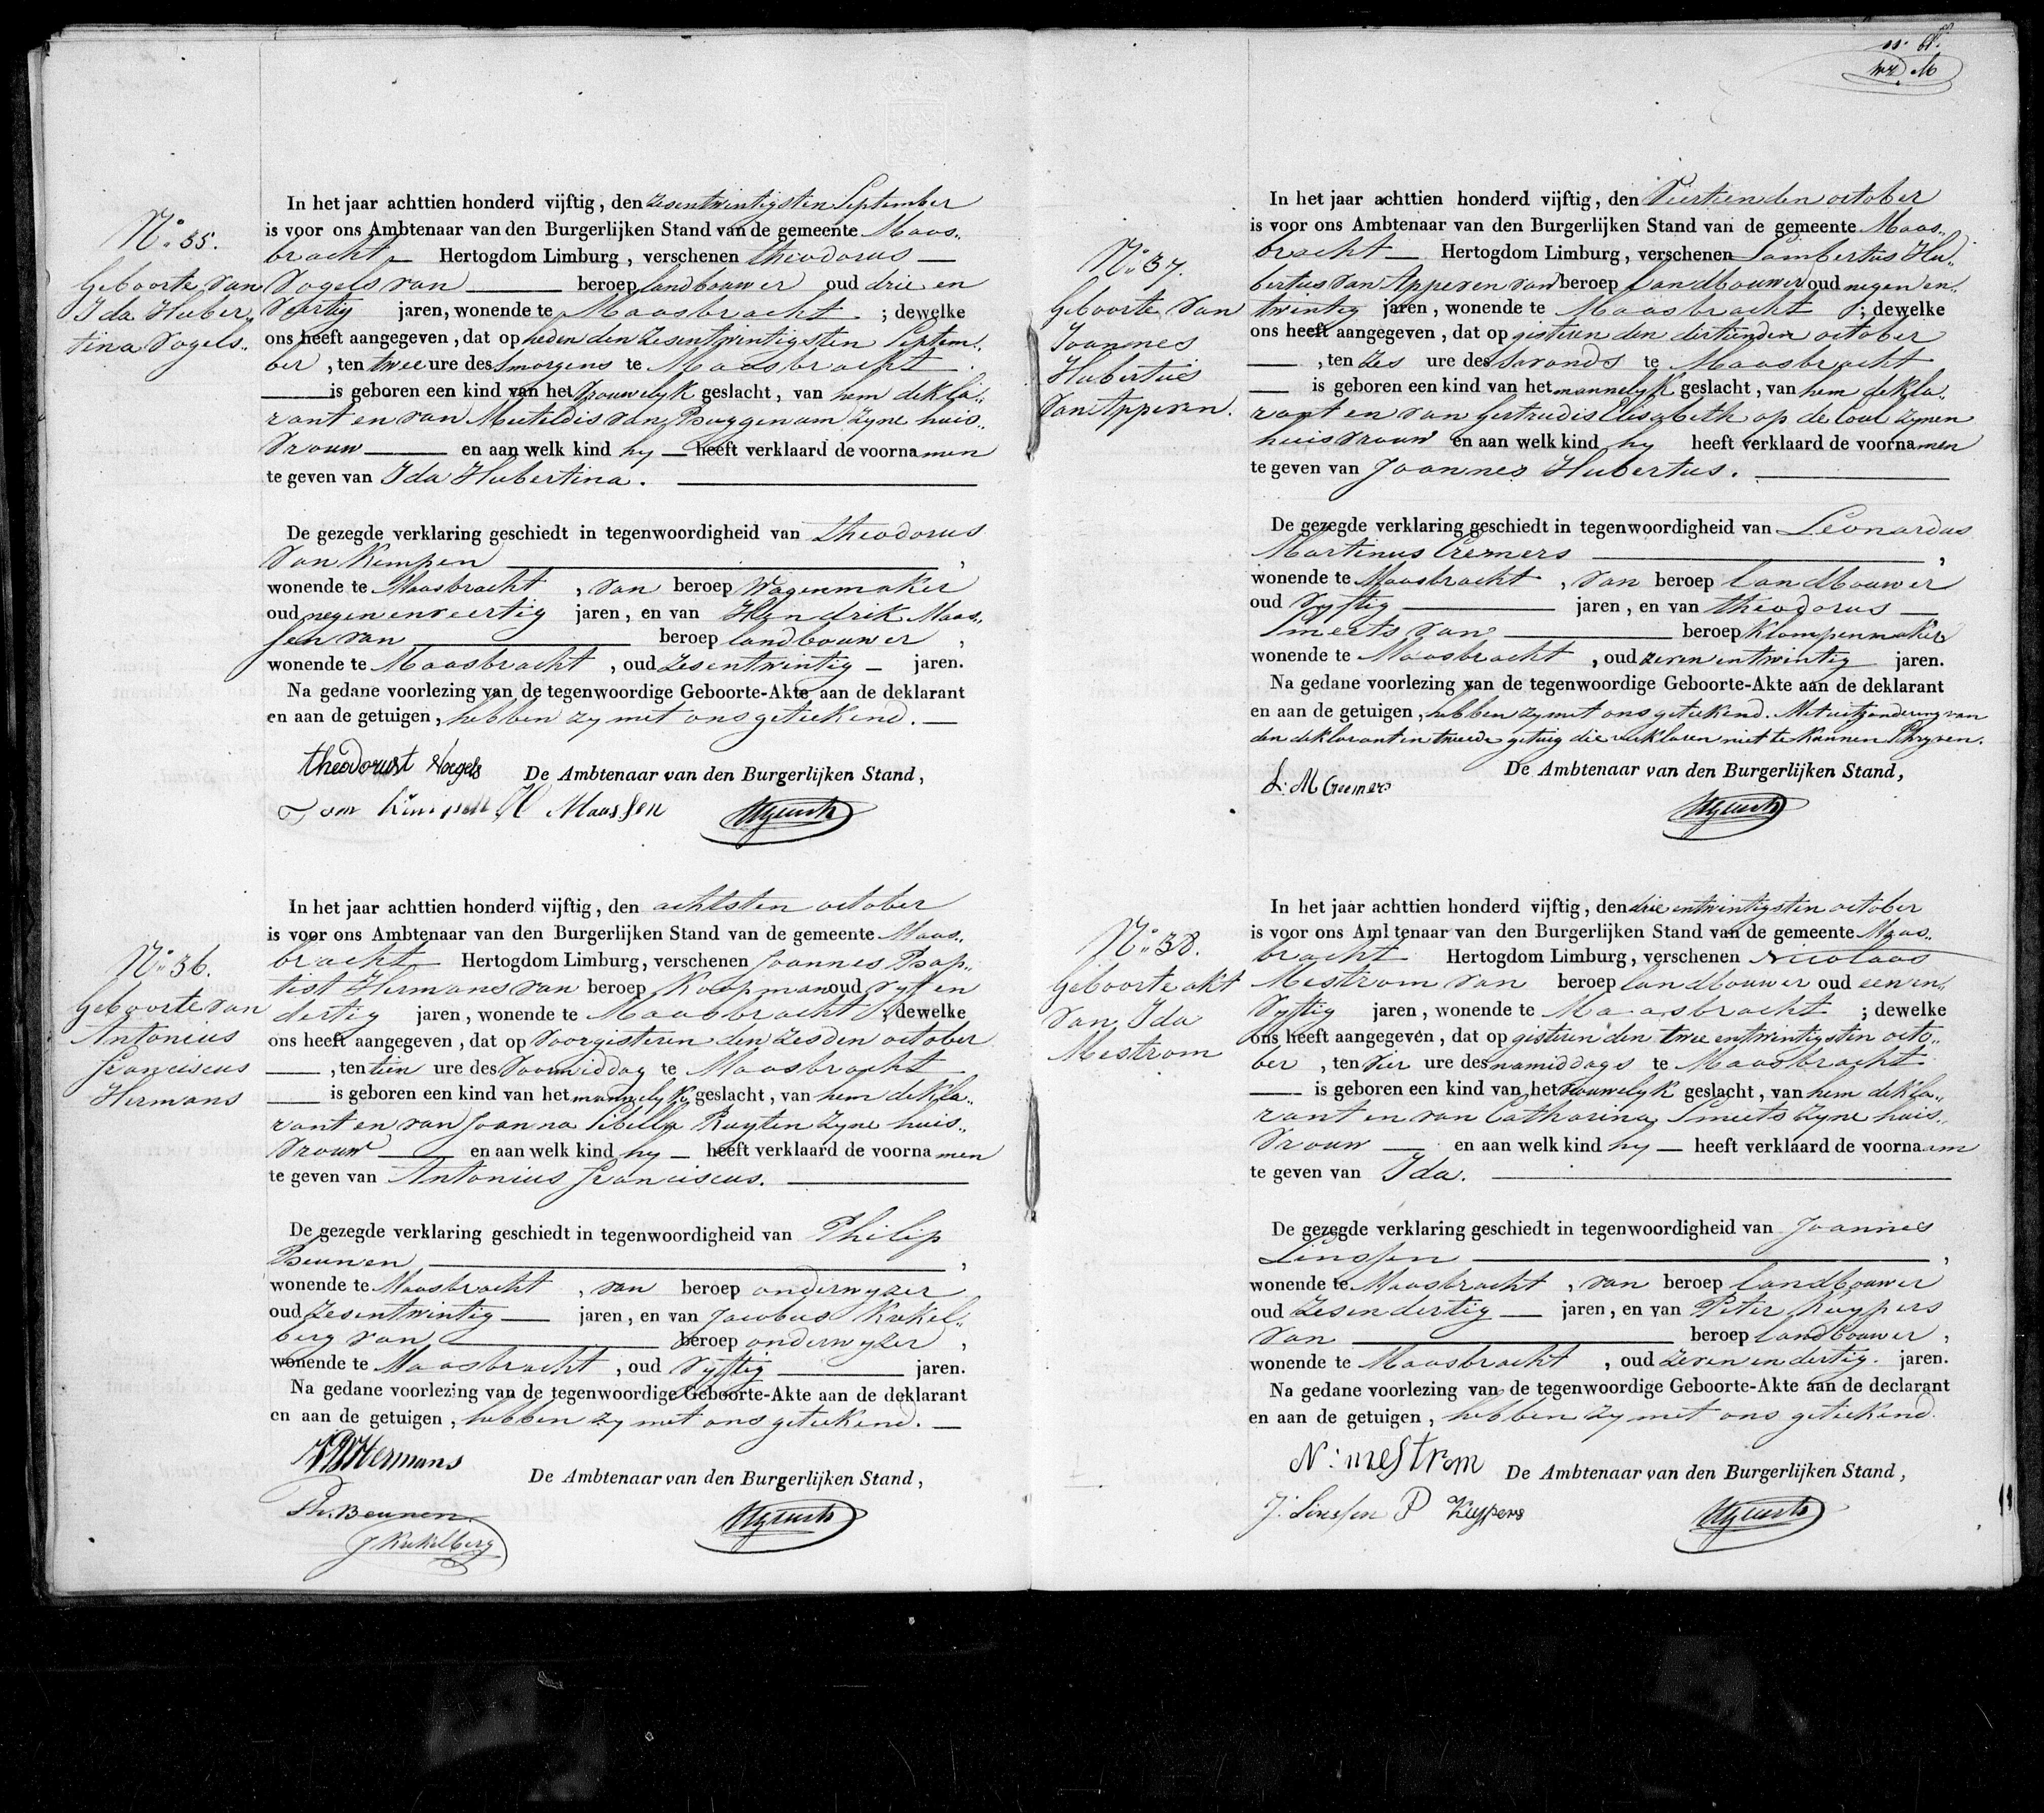 N.° 35.
Geboorte van
Ida Huber„
tina Vogels.
In het jaar achttien honderd vijftig, den zesentwintigsten September
is voor ons Ambtenaar van den Burgerlijken Stand van de gemeente Maas„
bracht Hertogdom Limburg, verschenen theodorus
Vogels van beroep landbouwer oud drie en
veertig jaren, wonende te Maasbracht ; dewelke
ons heeft aangegeven, dat op heden den zesentwintigsten Septem„
ber , ten twee ure des smorgens te Maasbracht
is geboren een kind van het vrouwelyk geslacht, van hem dekla„
rant en van Mechtildis van Buggenum zyne huis„
vrouw en aan welk kind hy heeft verklaard de voornamen
te geven van Ida Hubertina.
De gezegde verklaring geschiedt in tegenwoordigheid van theodorus
van Kempen ,
wonende te Maasbracht , van beroep Wagenmaker
oud negenenveertig jaren, en van Hendrik Maas„
sen van beroep landbouwer ,
wonende te Maasbracht , oud zesentwintig jaren.
Na gedane voorlezing van de tegenwoordige Geboorte-Akte aan de deklarant
en aan de getuigen, hebben zy met ons geteekend.
theodorus Voegels De Ambtenaar van den Burgerlijken Stand,
van Kempen H Maassen
N.° 36.
Geboorte van
Antonius
Franciscus
Hermans
In het jaar achttien honderd vijftig, den achtsten october
is voor ons Ambtenaar van den Burgerlijken Stand van de gemeente Maas„
bracht Hertogdom Limburg, verschenen Joannes Bap„
tist Hermans van beroep Koopman oud vyf en
dertig jaren, wonende te Maasbracht ; dewelke
ons heeft aangegeven, dat op voorgisteren den zesden october
, ten tien ure des voormiddag te Maasbracht
is geboren een kind van het mannelyk geslacht, van hem dekla„
rant en van Joanna Sibella Ruyten zyne huis„
vrouw en aan welk kind hy heeft verklaard de voornamen
te geven van Antonius Franciscus.
De gezegde verklaring geschiedt in tegenwoordigheid van Philip
Beunen ,
wonende te Maasbracht , van beroep onderwyzer
oud zesentwintig jaren, en van Jacobus Krekel„
berg van beroep onderwyzer ,
wonende te Maasbracht , oud vyftig jaren.
Na gedane voorlezing van de tegenwoordige Geboorte-Akte aan de deklarant
en aan de getuigen, hebben zy met ons geteekend.
Hermans
De Ambtenaar van den Burgerlijken Stand,
Ph. Beunen
J Krekelberg
N.° 37.
Geboorte van
Joannes
Hubertus
van Apperen.
In het jaar achttien honderd vijftig, den Viertienden october
is voor ons Ambtenaar van den Burgerlijken Stand van de gemeente Maas„
bracht Hertogdom Limburg, verschenen Lambertus Hu„
bertus van Apperen van beroep landbouwer oud negen en„
twintig jaren, wonende te Maasbracht ; dewelke
ons heeft aangegeven, dat op gisteren den dertienden october
, ten zes ure des savonds te Maasbracht
is geboren een kind van het mannelyk geslacht, van hem dekla„
rant en van Gertrudis Elisabeth op de Coul zynen
huisvrouw en aan welk kind hy heeft verklaard de voornamen
te geven van Joannes Hubertus.
De gezegde verklaring geschiedt in tegenwoordigheid van Leonardus
Martinus Cremers ,
wonende te Maasbracht , van beroep landbouwer
oud vyftig jaren, en van theodorus
Smeets van beroep Klompenmaker
wonende te Maasbracht , oud zeven entwintig jaren.
Na gedane voorlezing van de tegenwoordige Geboorte-Akte aan de deklarant
en aan de getuigen, hebben zy met ons geteekend. Met uitzondering van
den deklarant en tweede getuig die verklaren niet te kunnen schryven.
De Ambtenaar van den Burgerlijken Stand,
L. M Creemers
N.° 38.
Geboorte akt
van Ida
Mestrom
In het jaar achttien honderd vijftig, den drie entwintigsten october
is voor ons Amltenaar van den Burgerlijken Stand van de gemeente Maas„
bracht Hertogdom Limburg, verschenen Nicolaas
Mestrom van beroep landbouwer oud eenen„
vyftig jaren, wonende te Maasbracht ; dewelke
ons heeft aangegeven, dat op gisteren den twee entwintigsten octo„
ber , ten vier ure des namiddags te Maasbracht
is geboren een kind van het vrouwelyk geslacht, van hem dekla„
rant en van Catharina Smeets zyne huis„
vrouw en aan welk kind hy heeft verklaard de voornaam
te geven van Ida.
De gezegde verklaring geschiedt in tegenwoordigheid van Joannes
Linssen ,
wonende te Maasbracht , van beroep landbouwer
oud zesendertig jaren, en van Peter Kuypers
van beroep landbouwer ,
wonende te Maasbracht , oud zevenendertig. jaren.
Na gedane voorlezing van de tegenwoordige Geboorte-Akte aan de declarant
en aan de getuigen, hebben zy met ons geteekend.
N: mestrom De Ambtenaar van den Burgerlijken Stand,
J. Linssen P Kuypers